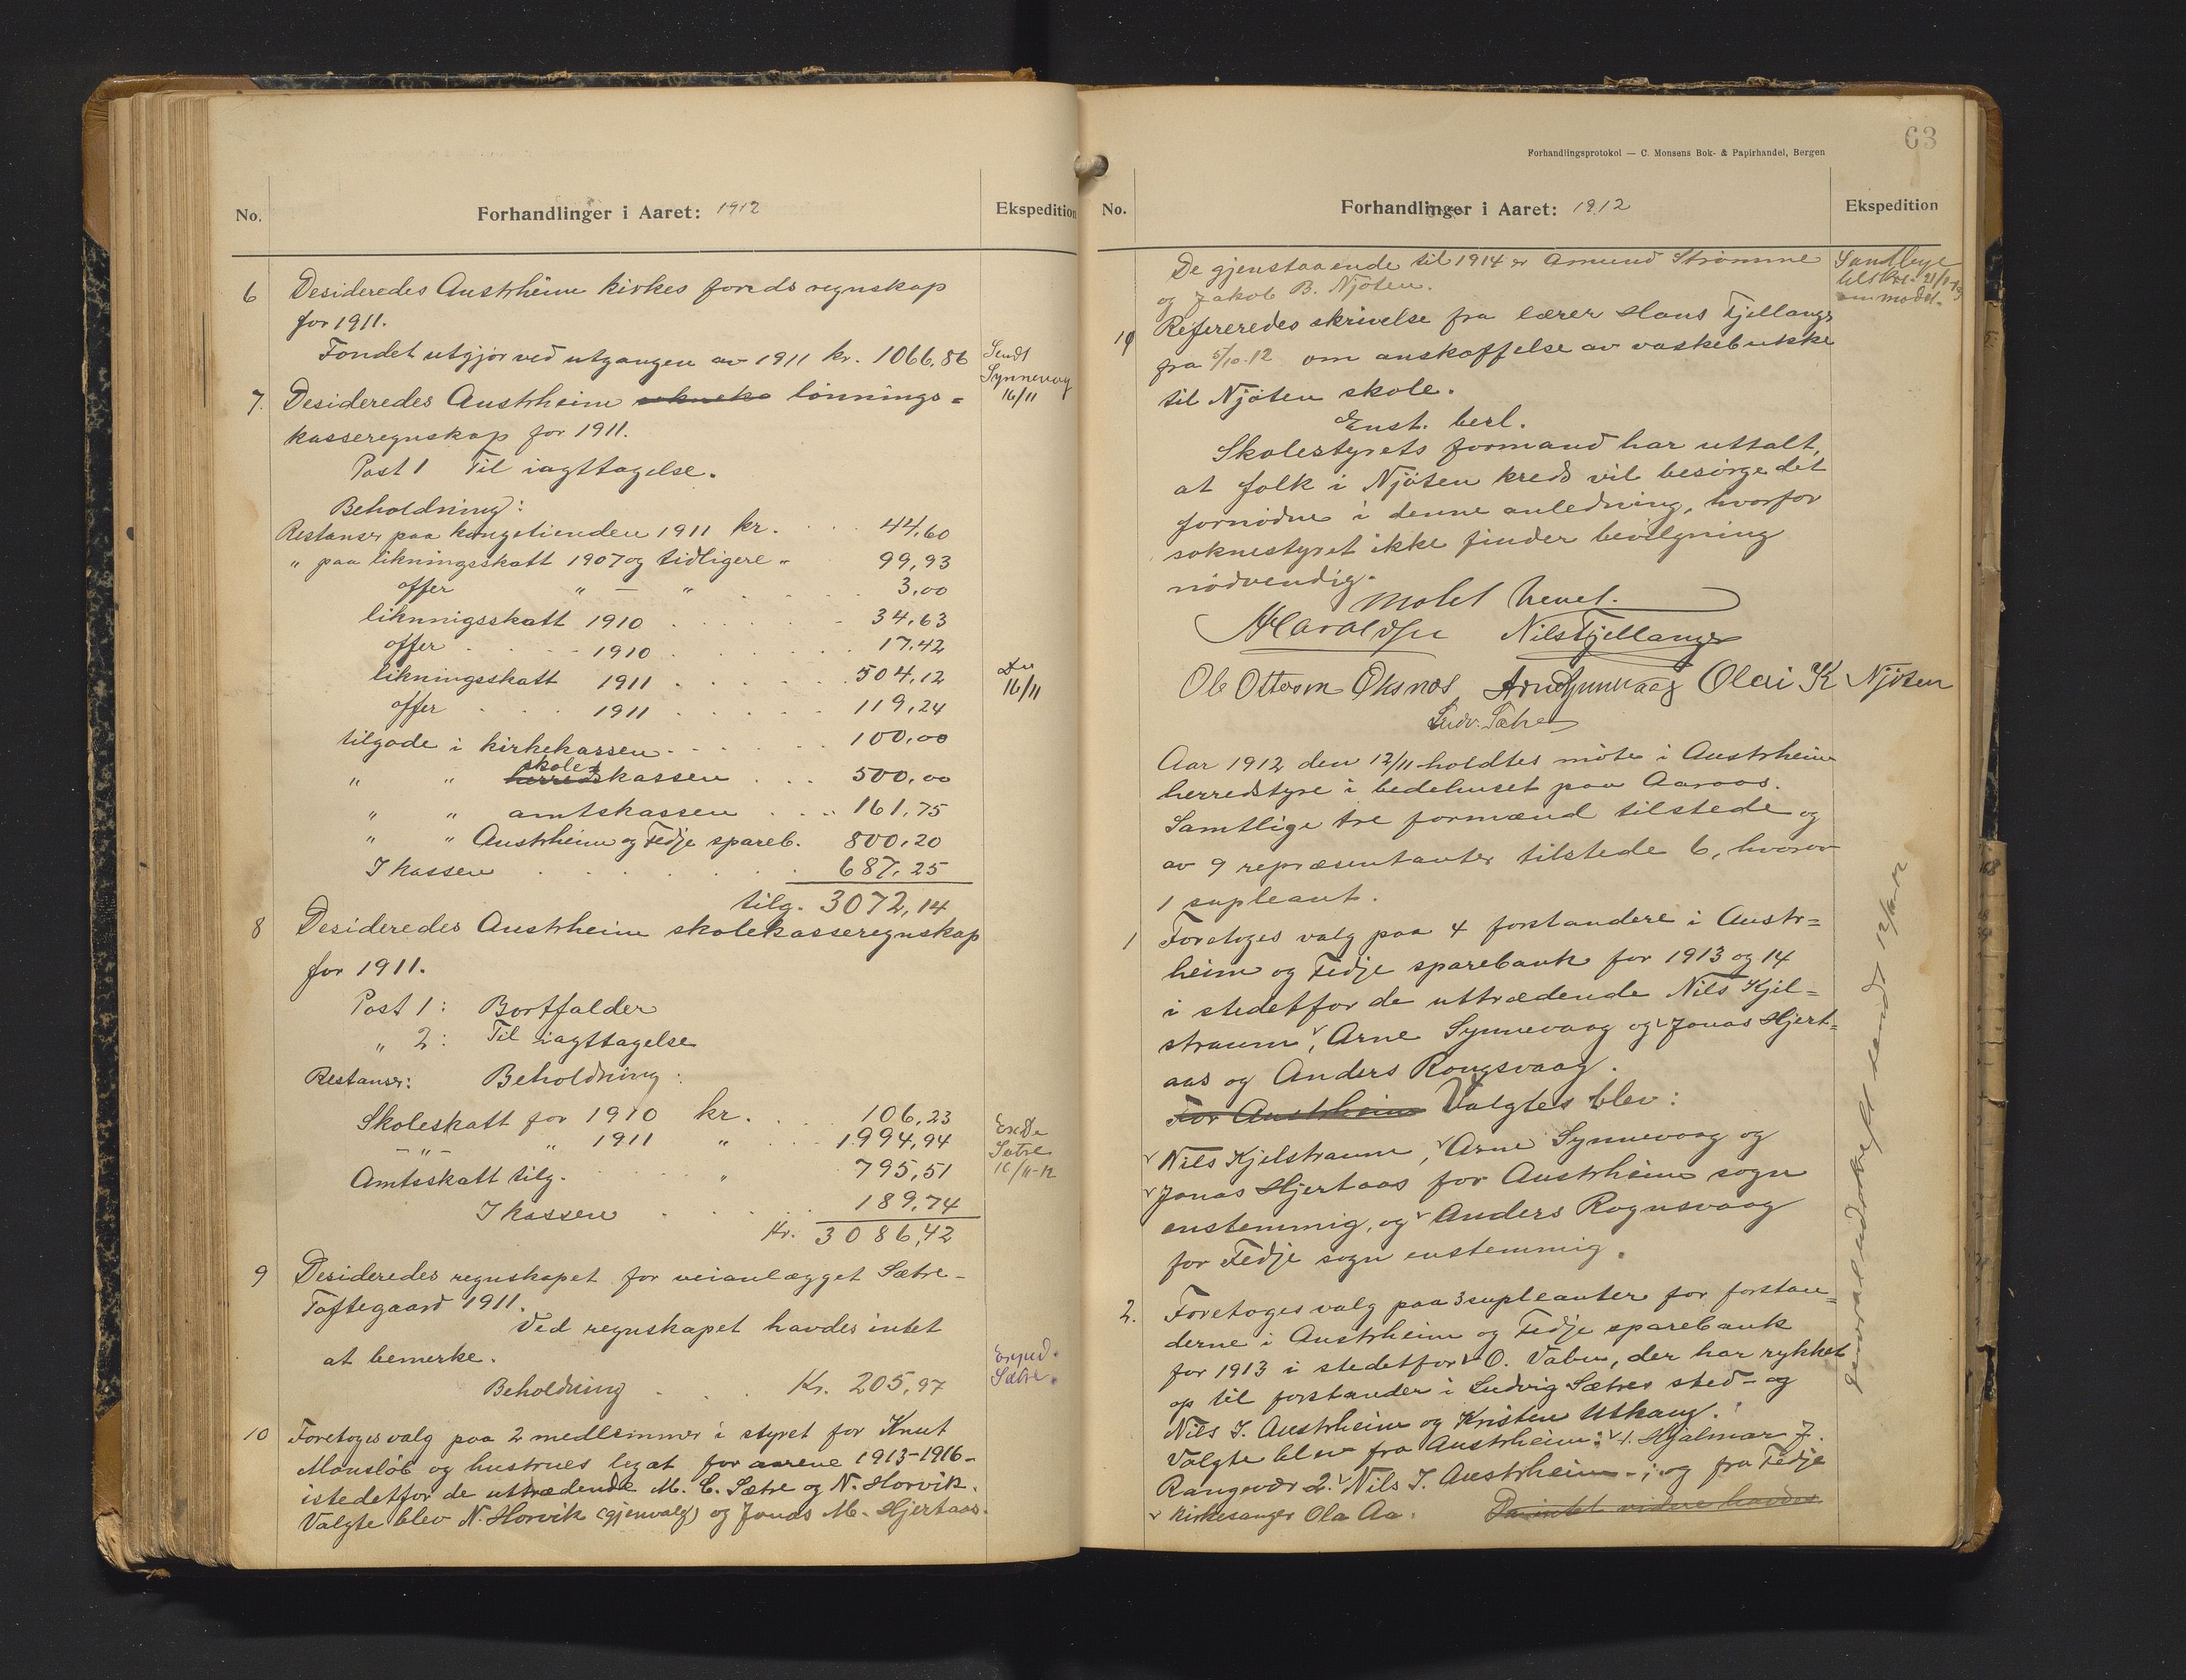 No.
Forhandlinger i Aaret: 1912
Ekspedition
6 Desideredes Austrheim kirkes fonds regnskap
for 1911.
Fondet utgjør ved utgangen av 1911 kr. 1066,86
Sendt
Synnevog
16/11
7. Desideredes Austrheim lønnings=
kasseregnskap for 1911.
Post 1 Til iagttagelse.
Beholdning:
Restanser paa kongetienden 1911 kr. . . . 44,60
" paa likningsskatt 1907 og tidligere " 99,93
offer " — " . . . . 3,00
liknnigsskatt 1910 . . . . . . 34,63
offer . . . . 1910 . . . . . . 17,42
likningsskatt 1911 . . . . . . 504,12
offer . . . . 1911 . . . . . 119,24
Do
16/11
tilgode i kirkekassen . . . . . . 100,00
" " skole
herredskassen . . . 500,00
" " amtskassen . . . . 161,75
" " Austrheim og Fedje spareb. 800,20
I kassen . . . . . . . 687,25
tilg. 3072,14
8 Desideredes Austrheim skolekasseregnskap
for 1911.
Post 1: Bortfalder
" 2: Til iagttagelse
Restanser: Beholdning:
Skoleskatt for 1910 kr. . . . 106,23
- " - " 1911 " . . . 1994,94
Amtsskatt tilg. . . . . " 795,51
I kassen . . . . . 189,74
Kr. 3086,42
Exp.
Sætre
16/11-12
9 Desideredes regnskapet for veianlægget Sætre-
Toftegaard 1911.
Ved regnskapet havdes intet
at bemerke.
Beholdning . . . Kr. 205,97
Exped.
Sætre.
10 Foretoges valg paa 2 medlemmer i styret for Knut
Monsløb og hustrues legat for aarene 1913-1916-
istedetfor de uttrædende M. E. Sætre og N. Horvik.
Valgte blev N. Horvik (gjenvalg) og Jonas M. Hjertaas.
63
Forhandlingsprotokol — C. Monsens Bok- & Papirhandel, Bergen
No.
Forhandlinger i Aaret: 1912
Ekspedition
De gjenstaaende til 1914 er Amund Strømme
og Jakob B. Njøten.
Sandbye
om mødet.
Refereredes skrivelse fra lærer Hans Fjellanger
fra 5/10-12 om anskaffelse av vaskebøtte
til Njøten skole.
Enst. besl.
Skolestyrets formand har uttalt,
at folk i Njøten kreds vil besørge det
fornødne i denne anledning, hvorfor
soknestyret ikke finder bevilgning
nødvendig.
Møtet hevet.
A Haraldsen Nils Fjellanger
Ole Ottersen Oksnes Arne Synnevaag Olai K Njøten
Ludv. Sætre
Aar 1912 den 12/11 holdtes møte i Austrheim
herredstyre i bedehuset paa Aaraas.
Samtlige tre formænd tilstede og
av 9 repræsentanter tilstede 6, hvorav
1 supleant.
1 Foretoges valg paa 4 forstandere i Austr=
heim og Fedje sparebank for 1913 og 14
i stedetfor de uttrædende Nils Kjel=
straum, Arne Synnevaag og Jonas Hjert=
aas og Anders Rongsvaag.
For Austrheim Valgtes blev:
Nils Kjelstraum, Arne Synnevaag og
Jonas Hjertaas for Austrheim sogn
enstemmig, og Anders Rognsvaag
for Fedje sogn enstemmig.
2. Foretoges valg paa 3 supleanter for forstan=
derne i Austrheim og Fedje sparebank
for 1913 i stedetfor O. Vabø, der har rykket
op til forstander i Ludvig Sætres sted - og
Nils J. Austrheim og Kristen Utkaug.
Valgte blev fra Austrheim: 1. Hjalmar J.
Rangevær 2. Nils J. Austrheim - ; og fra Fedje
kirkesanger Ola Aa. Da intet videre havdes